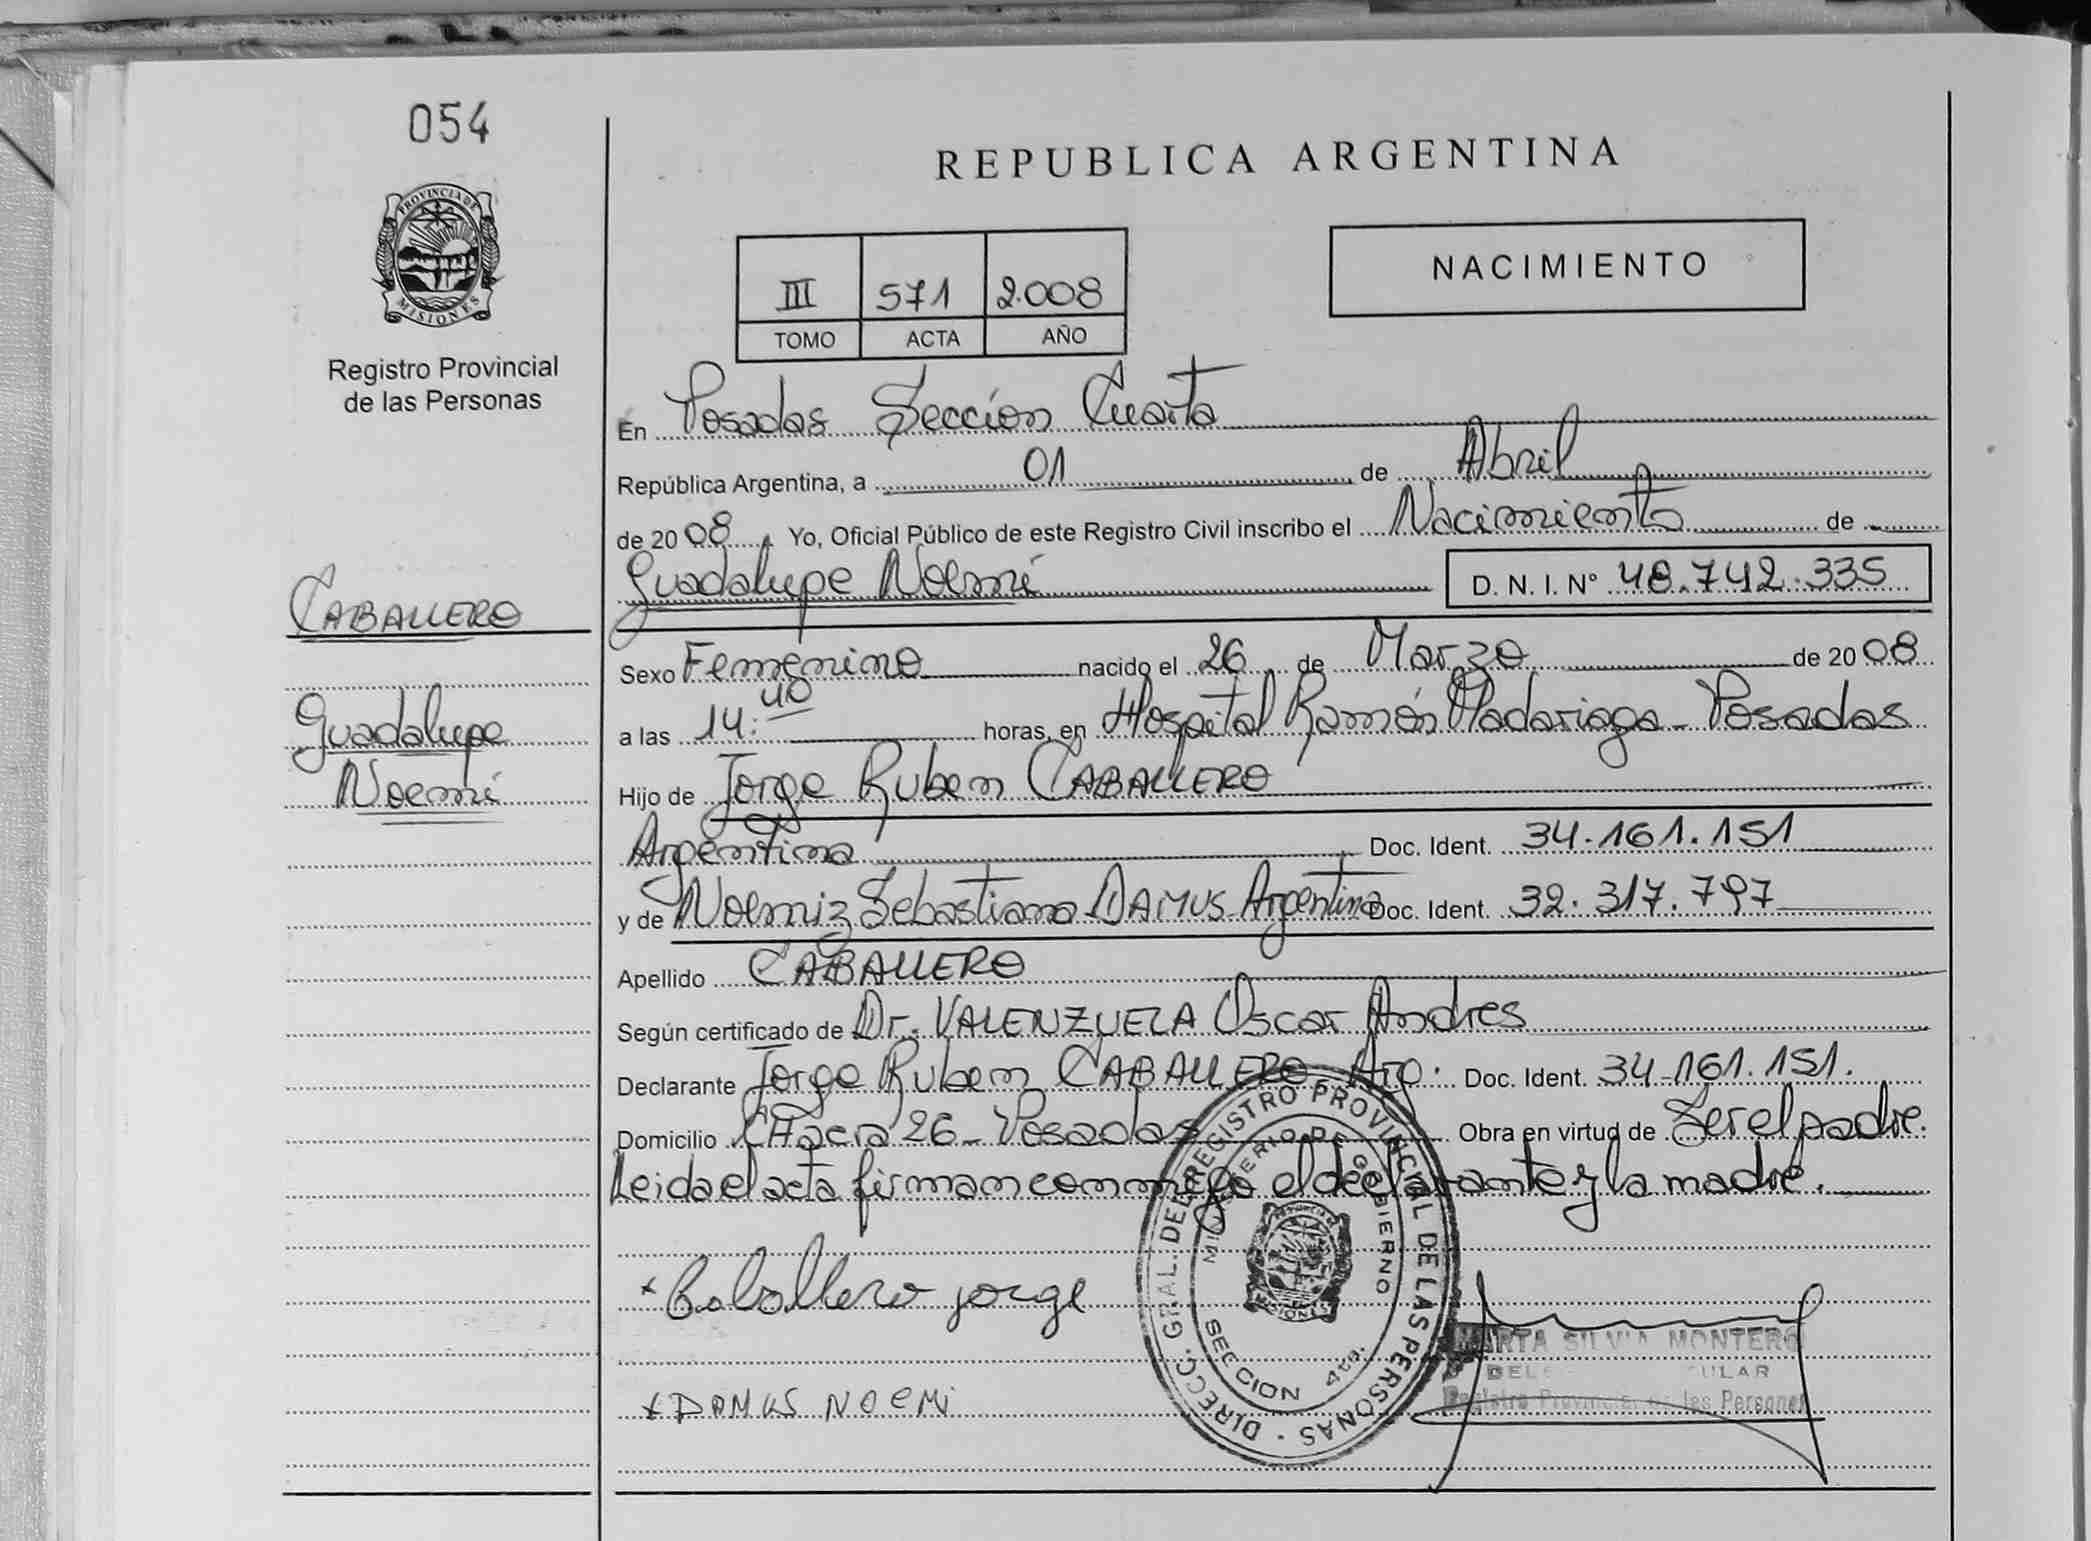 054
PROVINCIA DE
MISIONES
Registro Provincial
de las Personas
REPUBLICA ARGENTINA
III 571 2.008
TOMO ACTA AÑO
NACIMIENTO
En Posadas Sección Cuarta
República Argentina, a 01 de Abril
de 2008 Yo, Oficial Público de este Registro Civil inscribo el Nacimiento de
Guadalupe Noemí D. N. I. N° 48.742.335
CABALLERO
Guadalupe
Noemí
Sexo Femenino nacido el 26 de Marzo de 2008
a las 14:40 horas, en Hospital Ramón Madariaga - Posadas
Hijo de Jorge Ruben CABALLERO
Argentina Doc. Ident. 34.161.151
y de Noemiz Sebastiana DAMUS Argentina Doc. Ident. 32.317.797
Apellido CABALLERO
Según certificado de Dr. VALENZUELA Oscar Andres
Declarante Jorge Ruben CABALLERO Arg. Doc. Ident. 34.161.151.
Domicilio Chacra 26 - Posadas Obra en virtud de Ser el padre.
Leida el acta firman conmigo el declarante y la madre.
x Caballero jorge
x DAMUS NOEMi
DIRECC. GRAL. DEL REGISTRO PROVINCIAL DE LAS PERSONAS
MINISTERIO DE GOBIERNO
MISIONES
SECCION 4ta.
MARTA SILVIA MONTERO
Registro Provincial de las Personas